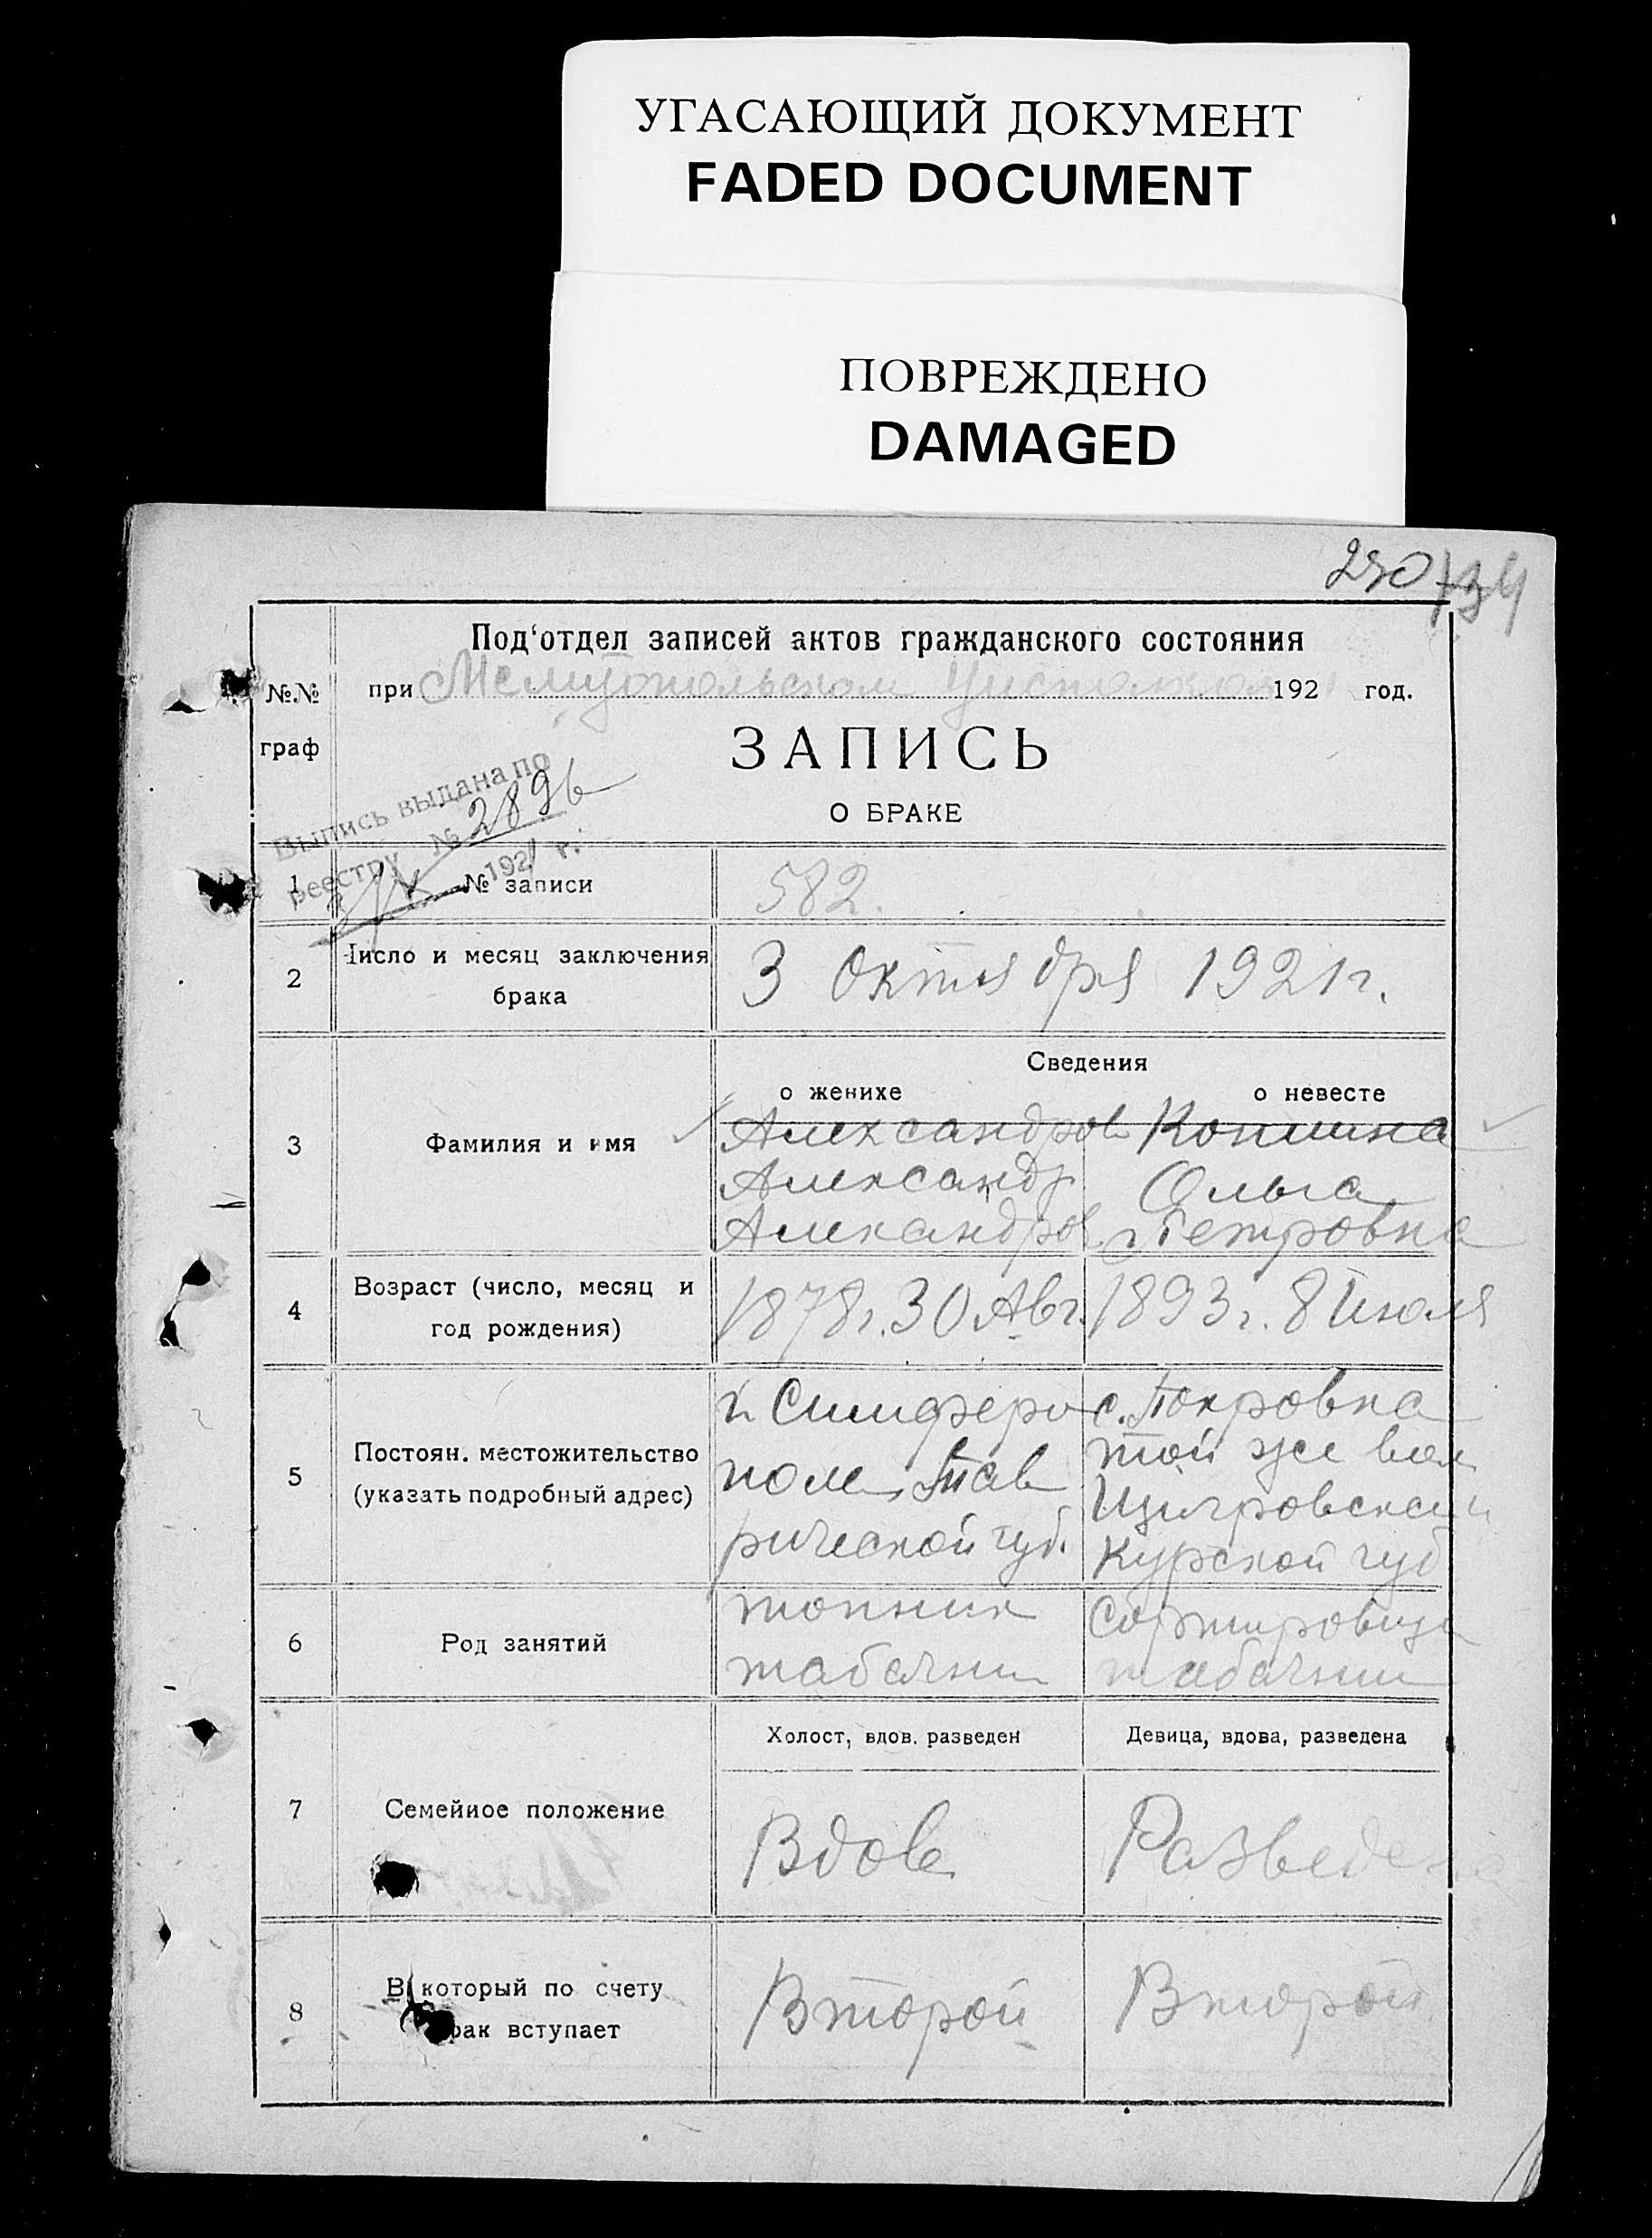 УГАСАЮЩИЙ ДОКУМЕНТ
FADED DOCUMENT
ПОВРЕЖДЕНО
DAMAGED
250 134
Под‘отдел записей актов гражданского состояния
№№ граф
при Мелитопольском 192 год.
ЗАПИСЬ
О БРАКЕ
Выпись выдана по
реестру № 2896
192 г.
1 № записи 582.
2 Число и месяц заключения брака 3 Октября 1921 г.
Сведения
о женихе о невесте
3 Фамилия и имя
Александров Копшина
Александр Ольга
Александров. Петровна
4 Возраст (число, месяц и год рождения)
1878 г. 30 Авг. 1893 г. 8 Июля
5 Постоян. местожительство (указать подробный адрес)
г. Симферо с. Покровка
поль, Тав той же вол
рической губ. Щигровский
Курской губ
6 Род занятий
топник Сортировщи
табачни табачни
7 Семейное положение
Холост, вдов. разведен Девица, вдова, разведена
Вдов Разведена
8 В который по счету брак вступает
Второй Второй